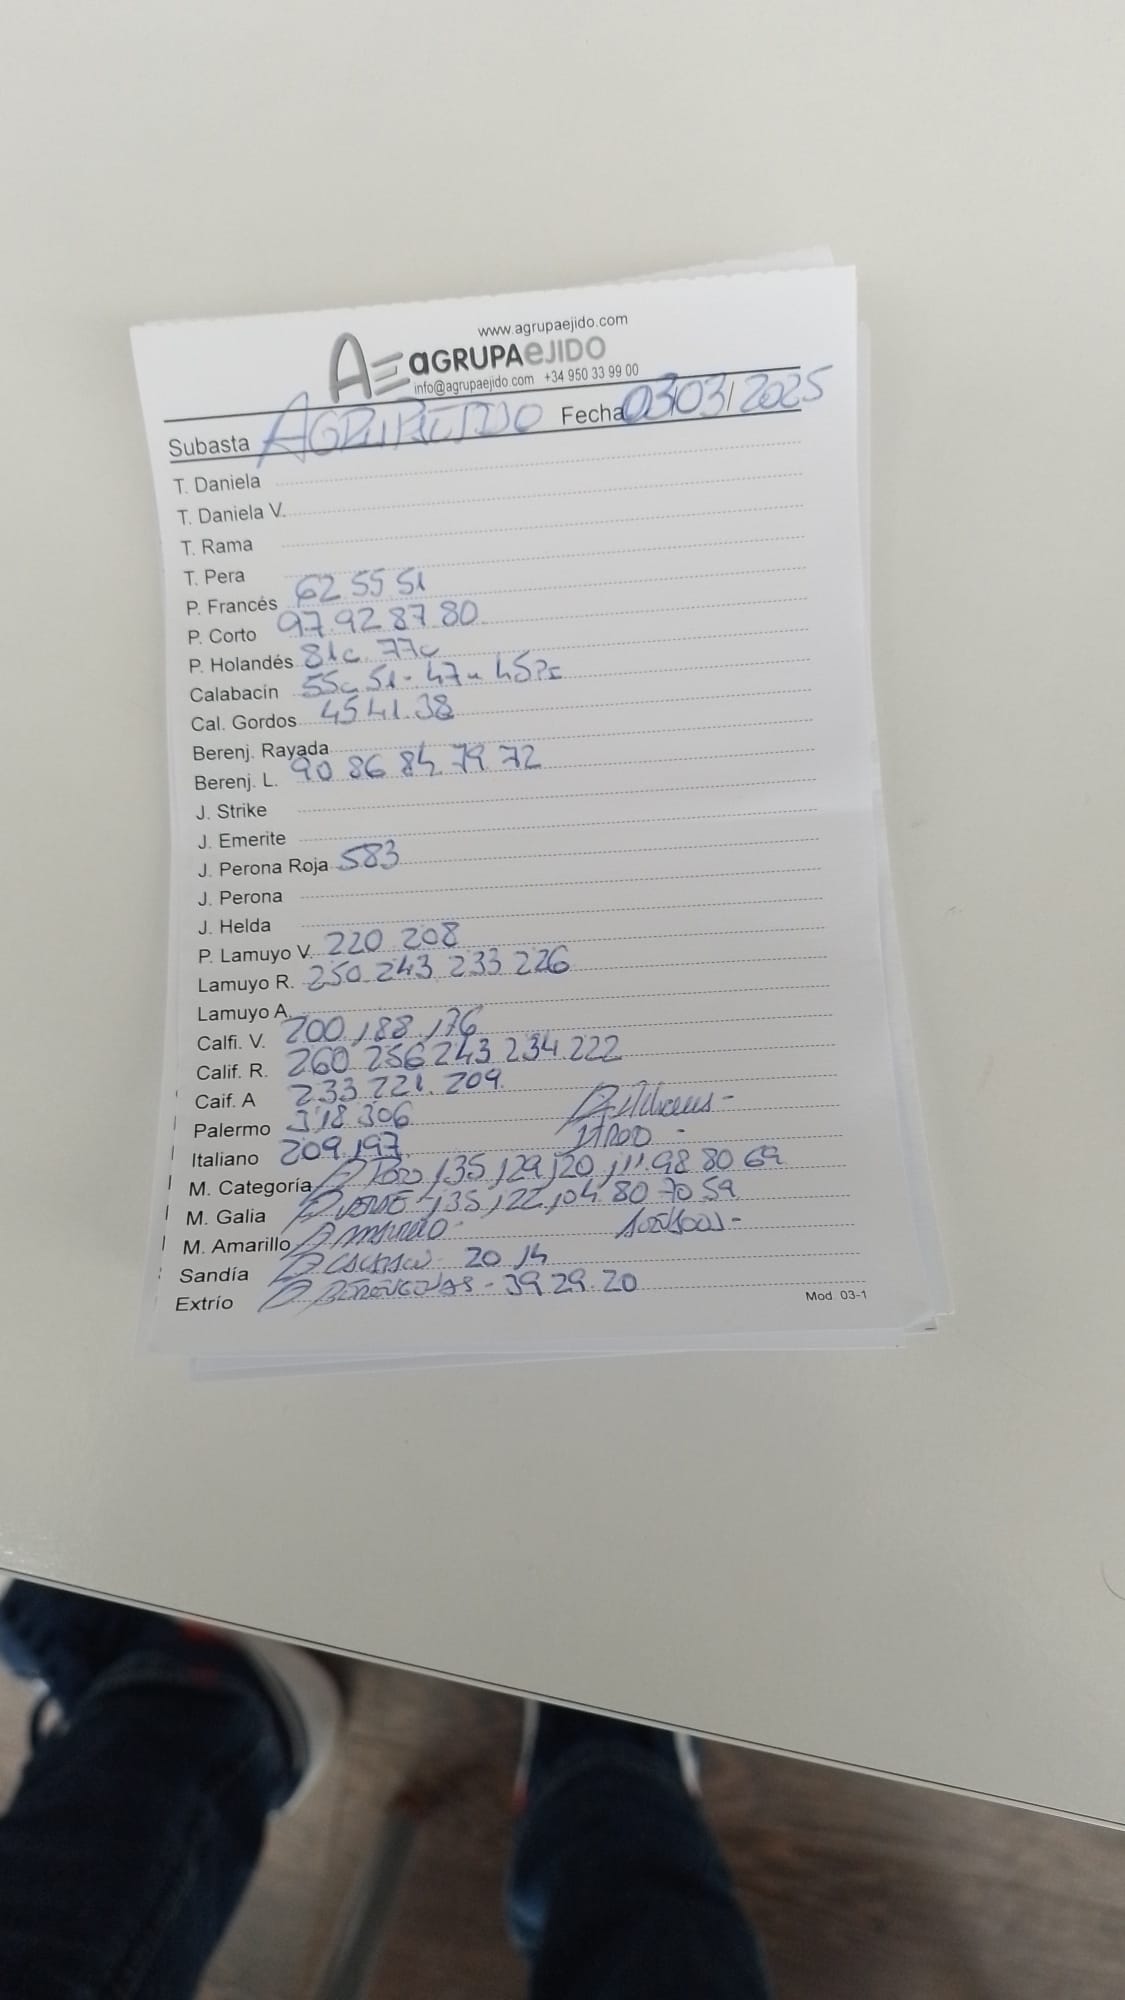 www.agrupaejido.com
AE aGRUPAeJIDO
info@agrupaejido.com +34 950 33 99 00
Subasta AGRUPAEJIDO Fecha 03/03/2025
T. Daniela
T. Daniela V.
T. Rama
T. Pera
P. Francés 62 55 51
P. Corto 97.92 87 80
P. Holandés 81c 77c
Calabacín 55c 51- 47u 45Pc
Cal. Gordos 45 41.38
Berenj. Rayada
Berenj. L. 90 86 84 79 72
J. Strike
J. Emerite
J. Perona Roja 583
J. Perona
J. Helda
P. Lamuyo V. 220 208
Lamuyo R. 250 243 233 226
Lamuyo A.
Calfi. V. 200 188 176
Calif. R. 260 256 243 234 222
Caif. A 233 221. 209
Palermo 318 306
Italiano 209 197
M. Categoría P TORO 135 129 120 111 98 80 69
M. Galia P VERDE 135 122 104 80 70 59
M. Amarillo P AMARILLO -
Sandía 20 14
Extrío P BERENGENAS - 39 29 20
Mod. 03-1